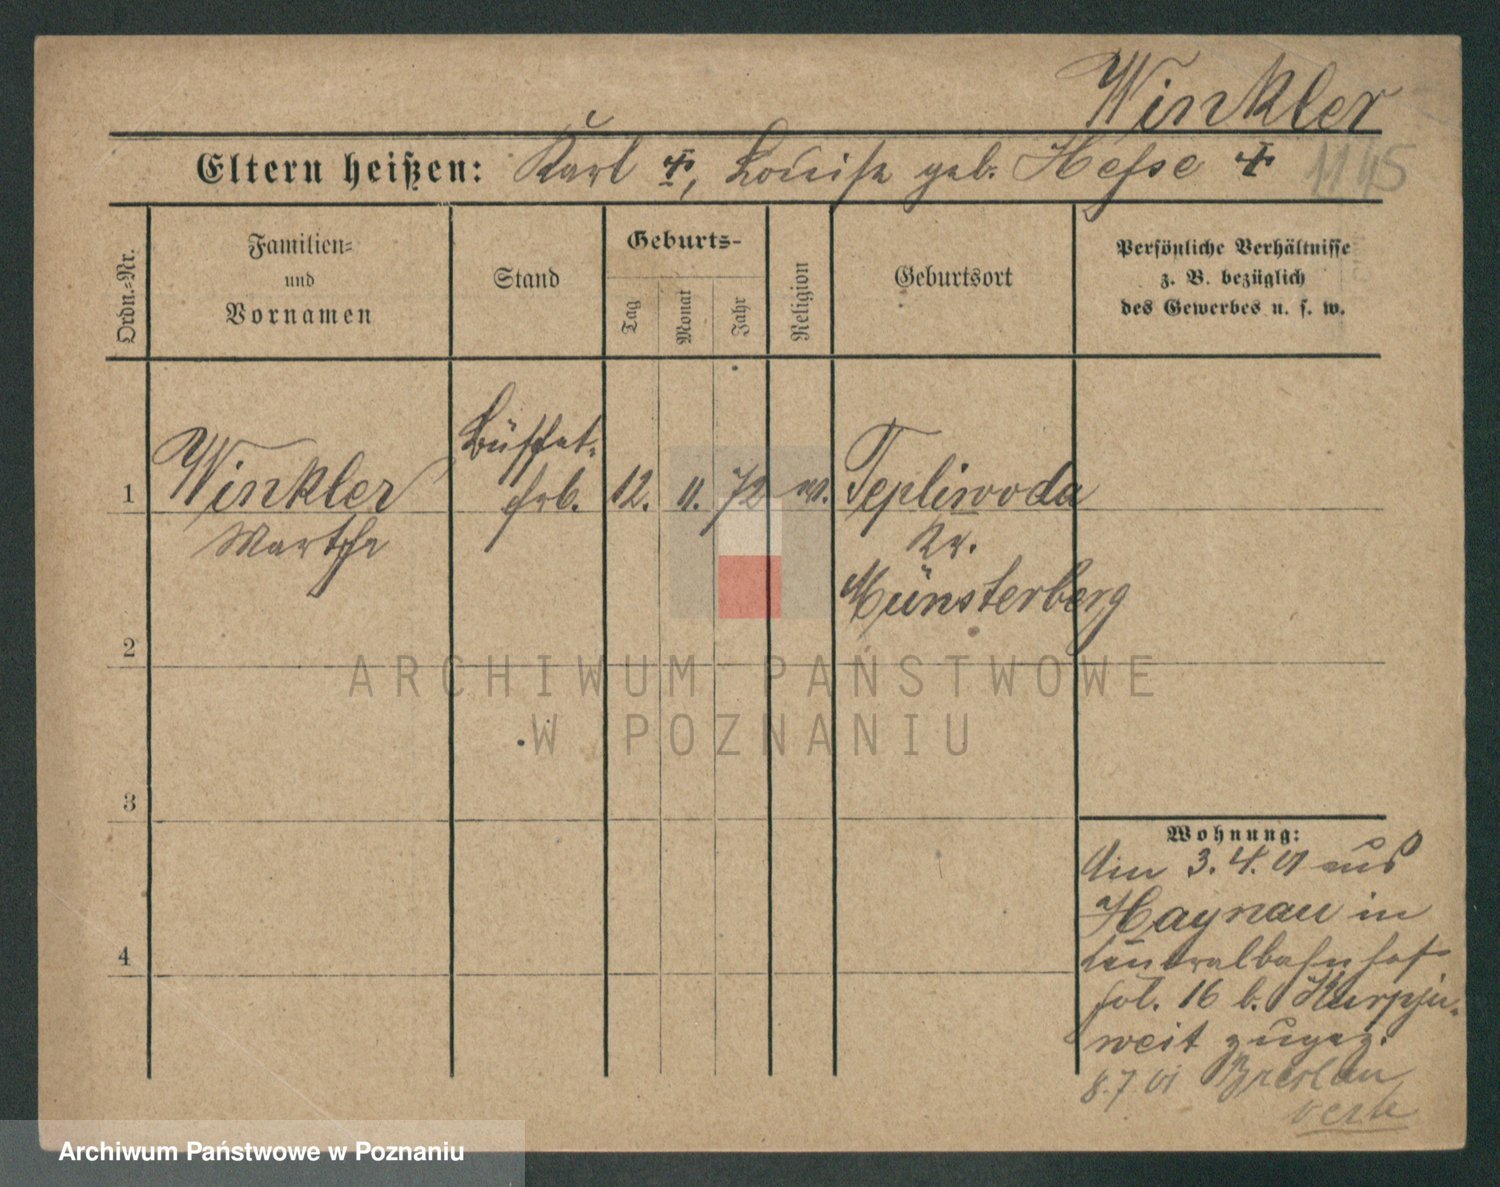 Winkler
Eltern heißen: Karl ✝, Louise geb. Hesse ✝ 1145
Ordn.-Nr.
Familien-
und
Vornamen
Stand
Geburts-
Tag
Monat
Jahr
Religion
Geburtsort
Persönliche Verhältnisse
z. B. bezüglich
des Gewerbes u. s. w.
1
Winkler
Martha
Büffet-
frl.
12.
11.
72
ev.
Tepliwoda
Kr.
Münsterberg
2
3
4
ARCHIWUM PAŃSTWOWE
W POZNANIU
Wohnung:
Am 3. 4. 01 aus
Haynau in
Centralbahnhof
fol. 16 b. Kurpju-
weit zugez.
8. 7. 01 Breslau
Archiwum Państwowe w Poznaniu